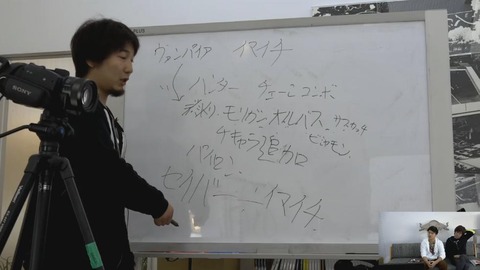 PLUS
ヴァンパイア イマイチ
ハンター チェーンコンボ
モリガン、オルバス、サスカッチ
ビシャモン
チキャラ追加
パイロン
セイバー イマイチ
SONY